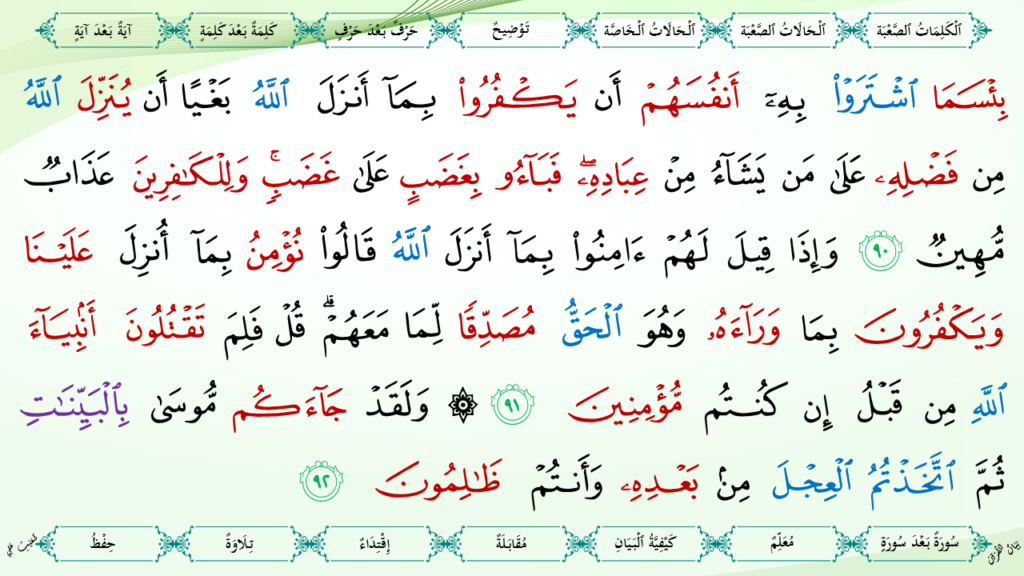 اَلْكَلِمَاتُ الصَّعْبَة اَلْحَالَاتُ الصَّعْبَة اَلْحَالَاتُ الْخَاصَّة تَوْضِيحٌ حَرْفٌ بَعْدَ حَرْفٍ كَلِمَةٌ بَعْدَ كَلِمَةٍ آيَةٌ بَعْدَ آيَةٍ
بِئْسَمَا ٱشْتَرَوْا۟ بِهِۦٓ أَنفُسَهُمْ أَن يَكْفُرُوا۟ بِمَآ أَنزَلَ ٱللَّهُ بَغْيًا أَن يُنَزِّلَ ٱللَّهُ
مِن فَضْلِهِۦ عَلَىٰ مَن يَشَآءُ مِنْ عِبَادِهِۦ ۖ فَبَآءُو بِغَضَبٍ عَلَىٰ غَضَبٍ ۚ وَلِلْكَـٰفِرِينَ عَذَابٌ
مُّهِينٌ ٩٠ وَإِذَا قِيلَ لَهُمْ ءَامِنُوا۟ بِمَآ أَنزَلَ ٱللَّهُ قَالُوا۟ نُؤْمِنُ بِمَآ أُنزِلَ عَلَيْنَا
وَيَكْفُرُونَ بِمَا وَرَآءَهُۥ وَهُوَ ٱلْحَقُّ مُصَدِّقًا لِّمَا مَعَهُمْ ۗ قُلْ فَلِمَ تَقْتُلُونَ أَنۢبِيَآءَ
ٱللَّهِ مِن قَبْلُ إِن كُنتُم مُّؤْمِنِينَ ٩١ ۞ وَلَقَدْ جَآءَكُم مُّوسَىٰ بِٱلْبَيِّنَـٰتِ
ثُمَّ ٱتَّخَذْتُمُ ٱلْعِجْلَ مِنۢ بَعْدِهِۦ وَأَنتُمْ ظَـٰلِمُونَ ٩٢
سُورَةٌ بَعْدَ سُورَةٍ مُعَلِّمٌ كَيْفِيَّةُ الْبَيَانِ مُقَابَلَةٌ إِقْتِدَاءٌ تِلَاوَةٌ حِفْظٌ